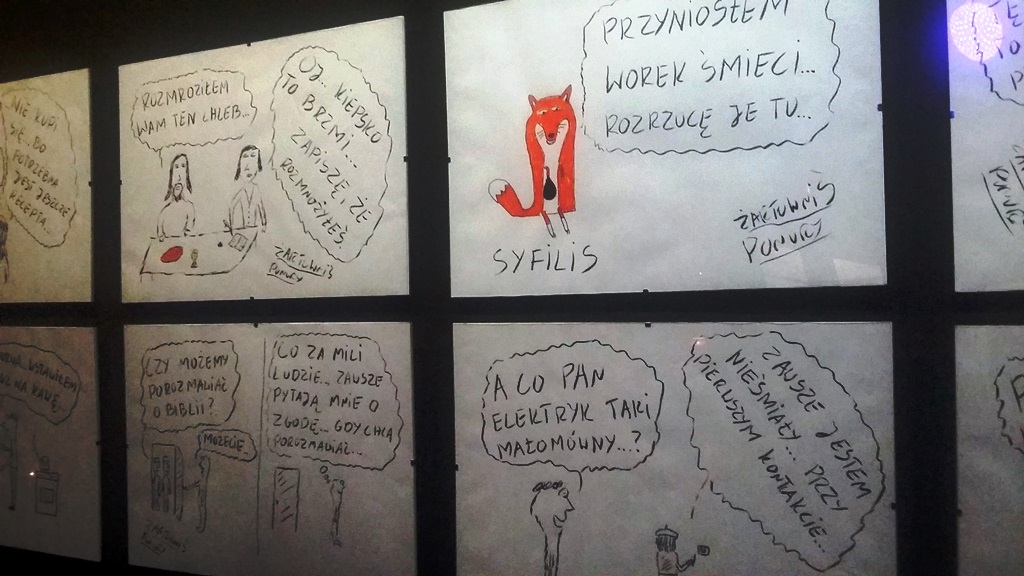 NIE KUPI
SIĘ. BO
POTRZEBNA
JEST
ROZMROZIŁEM
WAM TEN CHLEB...
OJ... KIEPSKO
TO BRZMI...
ZAPISZĘ, ŻE
ROZMNOŻYŁEŚ
ŻARTOWNIŚ
PONURY
PRZYNIOSŁEM
WOREK ŚMIECI...
ROZRZUCĘ JE TU...
SYFILIS
ŻARTOWNIŚ
PONURY
CZY MOŻEMY
POROZMAWIAĆ
O BIBLII?
MOŻECIE
CO ZA MILI
LUDZIE... ZAWSZE
PYTAJĄ MNIE O
ZGODĘ... GDY CHCĄ
POROZMAWIAĆ...
ŻARTOWNIŚ
PONURY
A CO PAN
ELEKTRYK TAKI
MAŁOMÓWNY...?
ZAWSZE JESTEM
NIEŚMIAŁY... PRZY
PIERWSZYM KONTAKCIE...